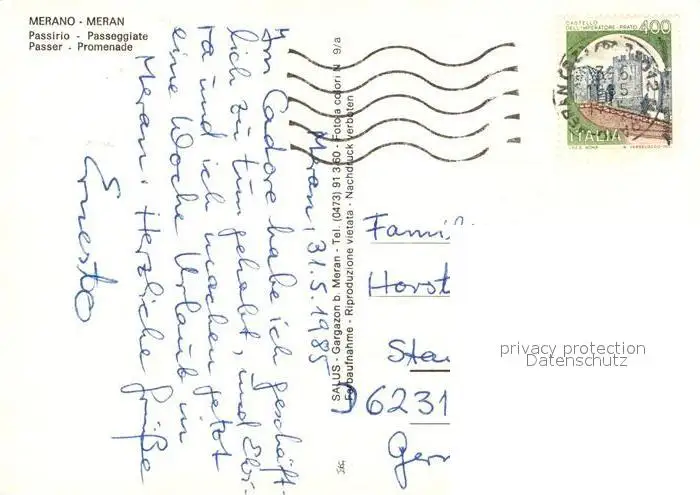 MERANO - MERAN
Passirio - Passeggiate
Passer - Promenade
Meran, 31.5.1985
Im Cadore habe ich geschäft-
lich zu tun gehabt, und
ra und ich machen jetzt
eine Woche Urlaub in
Meran. Herzliche Grüße
Ernesto
SALUS - Gargazon b. Meran - Tel. (0473) 91 3 60 - Fotocolori N 9/a
Farbaufnahme - Riproduzione vietata - Nachdruck verboten
CASTELLO
DELL'IMPERATORE - PRATO
400
ITALIA
Famil
Horst
D 6231
Germ
privacy protection
Datenschutz